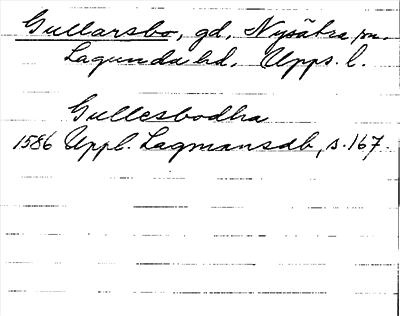 Gullarsbo, gd, Nysätra sn.
Lagunda hd, Upps. l.
Gullesbodha
1586 Uppl. Lagmansdb, s. 167.